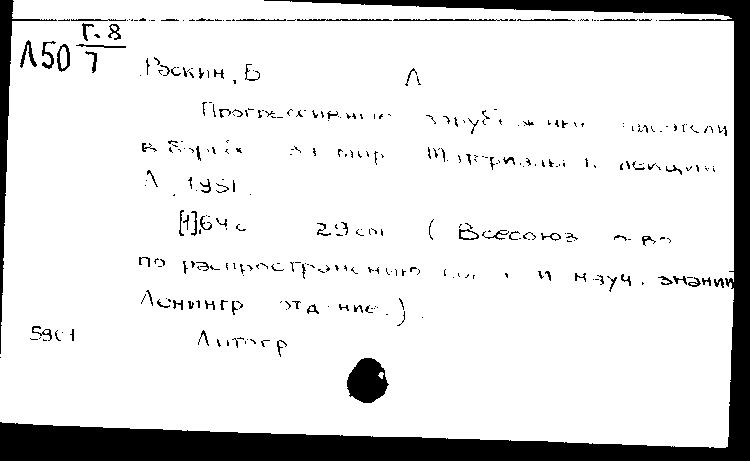 Л50 Г.8/7
Раскин, Б Л
Прогрессивные зарубежные писатели
в борьбе за мир Материалы к лекции
Л, 1951.
[1],64 с 29 см (Всесоюз о-во
по распространению и науч. знаний
Ленингр отд-ние.).
Литогр